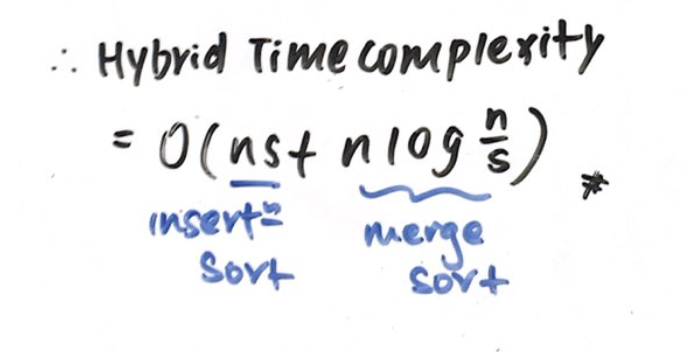 ∴ Hybrid Time complexity
= O(ns + n log n/s) *
insertn sort
merge sort